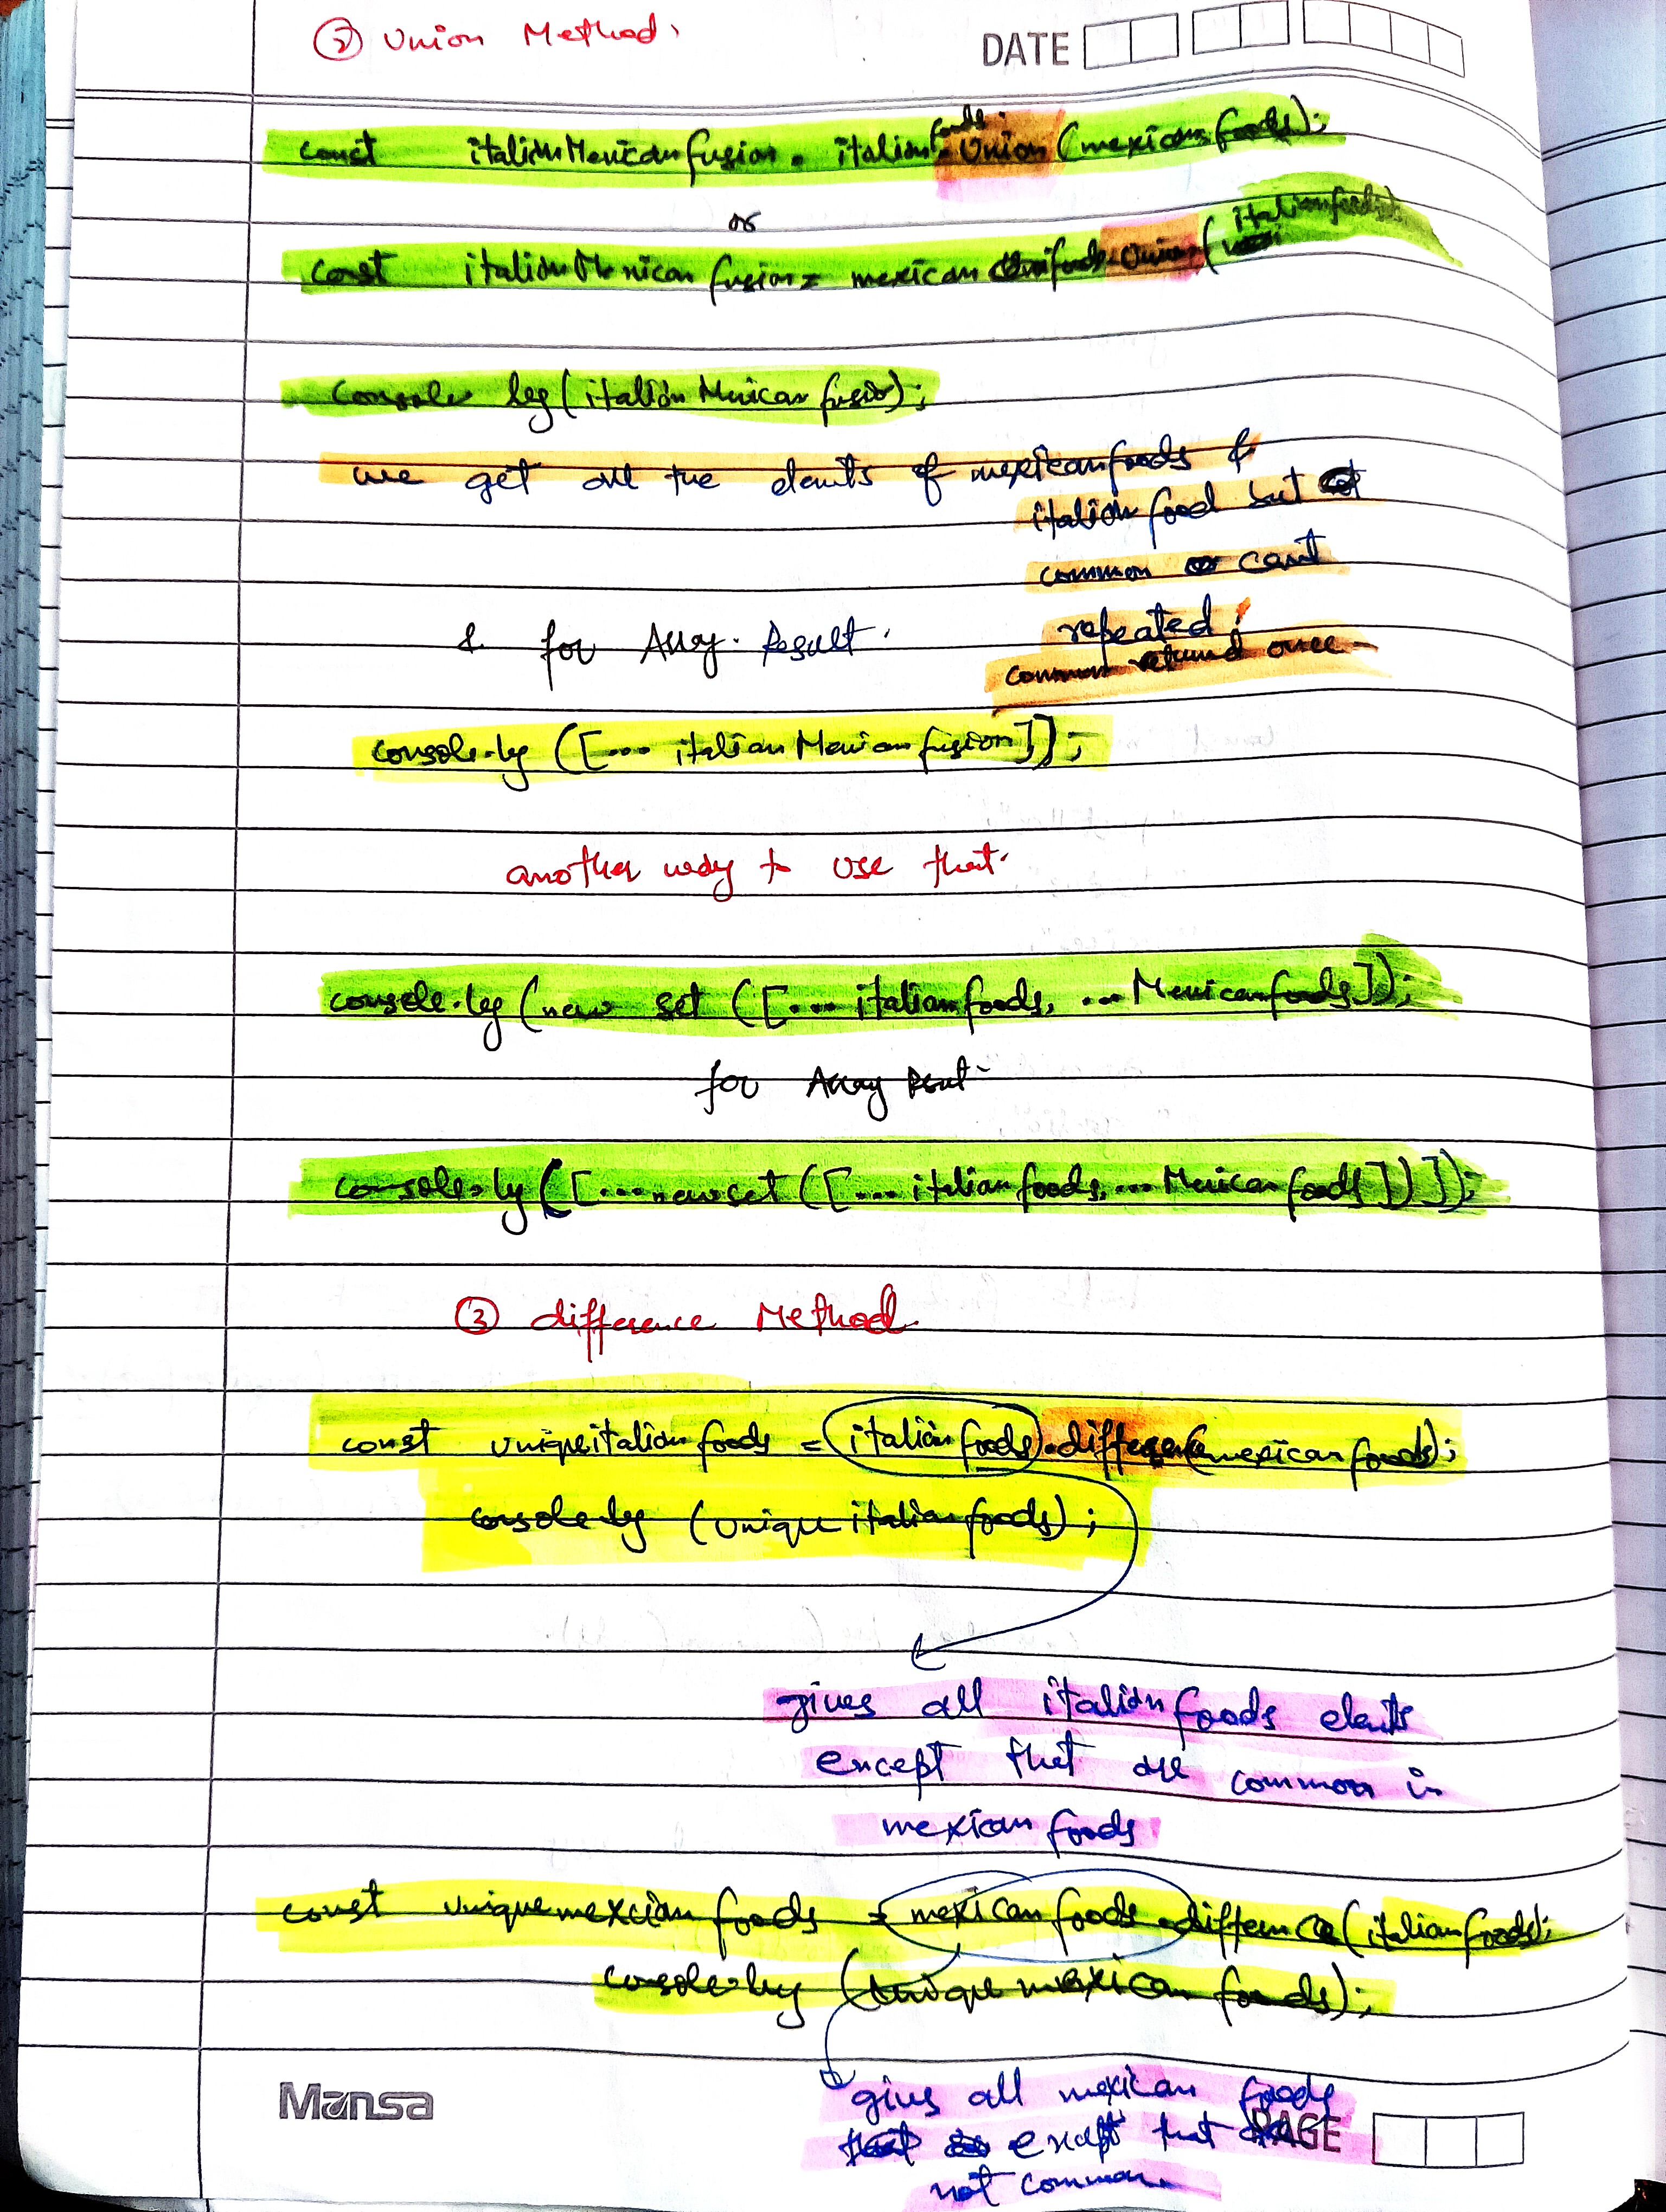 ② Union Method.
DATE
const italianMexican fusion = italian foods.Union (mexican foods);
or
const italianMexican fusion = mexican foods.Union (italianfoods)
console log (italianMexican fusion);
we get all the elents of mexicanfoods &
italian food but
common cant
repeated;
common retund once
& for Array. Result.
console.log ([... italianMexican fusion]);
another way to use that.
console.log (new set ([... italianfoods, ... Mexicanfoods]);
for Array Resut
console.log ([... new set ([... italian foods, ... Mexican foods])]);
③ difference Method
const uniqueitalian foods = italian foods.difference(mexican foods);
console.log (unique italianfoods);
gives all italian foods elents
except that are common in
mexican foods
const uniquemexcian foods = mexican foods.differnce(italianfoods);
console.log (unique mexican foods);
Mansa
gives all mexican foods
PAGE
except that
not common.